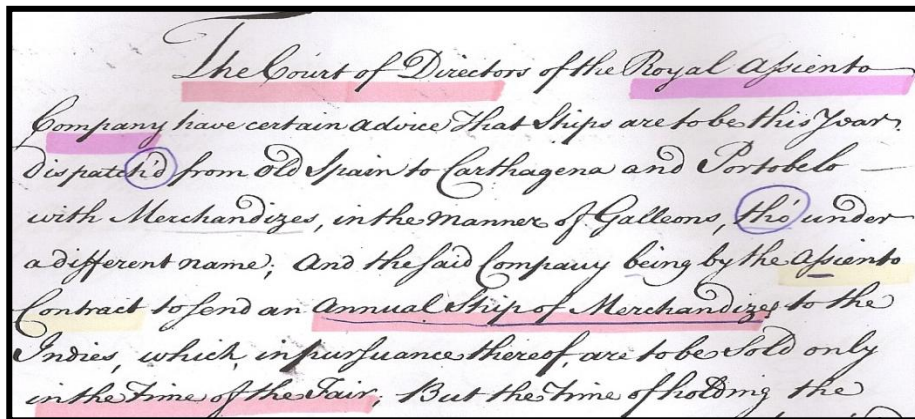 The Court of Directors of the Royal Assiento
Company have certain advice That Ships are to be this Year
dispatch'd from old Spain to Carthagena and Portobelo
with Merchandizes, in the Manner of Galleons, tho' under
a different name; And the said Company being by the Assiento
Contract to send an Annual Ship of Merchandizes to the
Indies, which, in pursuance thereof, are to be Sold only
in the Time of the Fair; But the Time of holding the